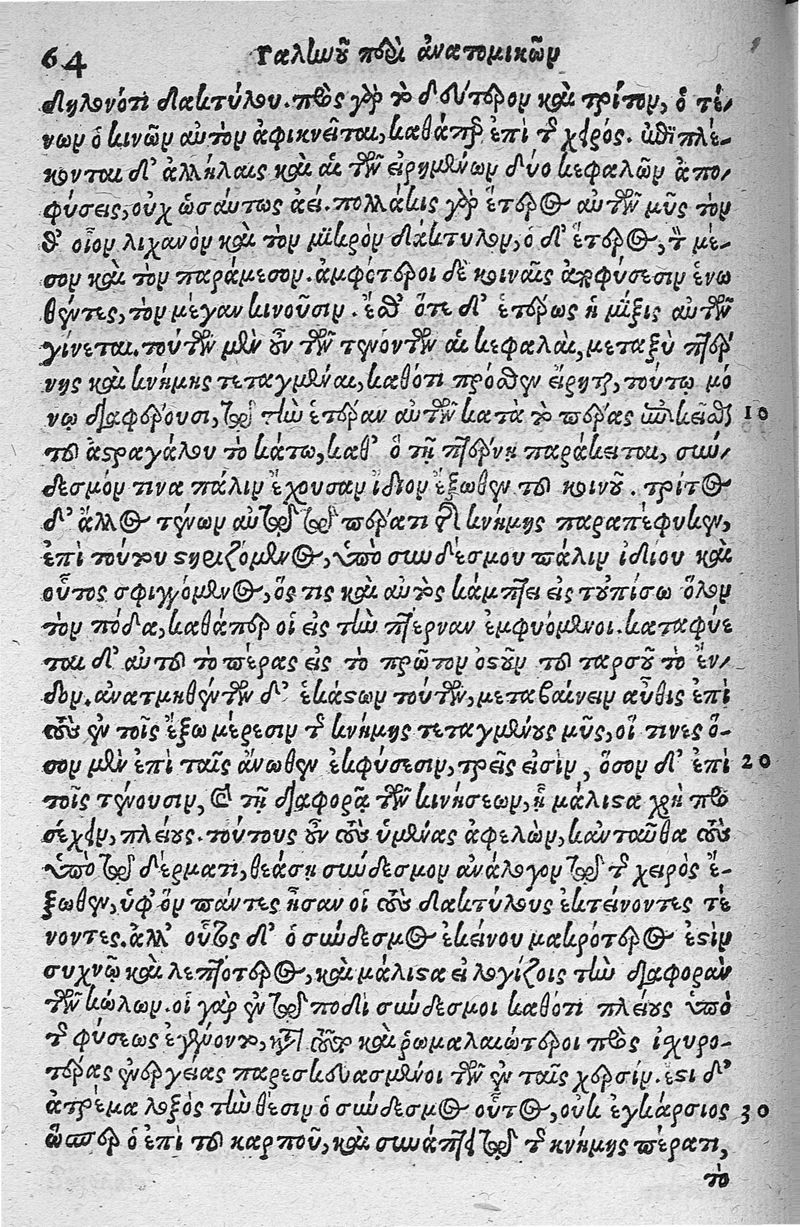 64 Γαληνοῦ περὶ ἀνατομικῶν
δηλονότι δακτύλου. πρὸς γὰρ τὸ δεύτερον καὶ τρίτον, ὁ τέ-
νων ὁ κινῶν αὐτὸν ἀφικνεῖται, καθάπερ ἐπὶ τῆς χειρός. ἐπιπλέ-
κονται δ' ἀλλήλαις καὶ αἱ τῶν εἰρημένων δύο κεφαλῶν ἀπο-
φύσεις, οὐχ ὡσαύτως ἀεί. πολλάκις γὰρ ἕτερος αὐτῶν μῦς τὸν
θ' οἷον λιχανὸν καὶ τὸν μικρὸν δάκτυλον, ὁ δ' ἕτερος, τὸν μέ-
σον καὶ τὸν παράμεσον. ἀμφότεροι δὲ κοιναῖς ἐκφύσεσιν ἑνω
θέντες, τὸν μέγαν κινοῦσιν. ἔσθ' ὅτε δ' ἑτέρως ἡ μίξις αὐτῶν
γίνεται. τούτων μὲν οὖν τῶν τενόντων αἱ κεφαλαὶ, μεταξὺ πτέρ
νης καὶ κνήμης τεταγμέναι, καθότι πρόσθεν εἴρηται, τούτῳ μό
νῳ διαφέρουσι, τῷ τὴν ἑτέραν αὐτῶν κατὰ τὸ πέρας ἐποχεῖσθαι 10
τοῦ ἀστραγάλου τὸ κάτω, καθ' ὃ τῇ πτέρνῃ παράκειται, σύν-
δεσμόν τινα πάλιν ἔχουσαν ἴδιον ἔξωθεν τοῦ κοινοῦ. τρίτος
δ' ἄλλος τένων αὐτῷ τῷ πέρατι τῆς κνήμης παραπέφυκεν,
ἐπὶ τούτου στηριζόμενος, ὑπὸ συνδέσμου πάλιν ἰδίου καὶ
οὗτος σφιγγόμενος, ὅς τις καὶ αὐτὸς κάμπτει εἰς τοὐπίσω ὅλον
τὸν πόδα, καθάπερ οἱ εἰς τὴν πτέρναν ἐμφυόμενοι. καταφύε
ται δ' αὐτοῦ τὸ πέρας εἰς τὸ πρῶτον ὀστοῦν τοῦ ταρσοῦ τὸ ἔν-
δον. ἀνατμηθέντων δ' ἑκάστων τούτων, μεταβαίνειν αὖθις ἐπὶ
τοὺς ἐν τοῖς ἔξω μέρεσιν τῆς κνήμης τεταγμένους μῦς, οἵ τινες ὅ-
σον μὲν ἐπὶ ταῖς ἄνωθεν ἐκφύσεσιν, τρεῖς εἰσὶν, ὅσον δ' ἐπὶ 20
τοῖς τένουσιν, καὶ τῇ διαφορᾷ τῶν κινήσεων, ᾗ μάλιστα χρὴ προ
σέχειν, πλείους. τούτους οὖν τοὺς ὑμένας ἀφελὼν, κἀνταῦθα τοὺς
ὑπὸ τῷ δέρματι, θεάσῃ σύνδεσμον ἀνάλογον τῷ τῆς χειρὸς ἔ-
ξωθεν, ὑφ' ὃν πάντες ἦσαν οἱ τοὺς δακτύλους ἐκτείνοντες τέ
νοντες. ἀλλ' οὗτος δ' ὁ σύνδεσμος ἐκείνου μακρότερος ἐστὶν
συχνῷ καὶ λεπτότερος, καὶ μάλιστα εἰ λογίζοις τὴν διαφορὰν
τῶν κώλων. οἱ γὰρ ἐν τῷ ποδὶ σύνδεσμοι καθότι πλείους ὑπὸ
τῆς φύσεως ἐγένοντο, κατὰ τοῦτο καὶ ῥωμαλαιώτεροι πρὸς ἰσχυρο-
τέρας ἐνεργείας παρεσκευασμένοι τῶν ἐν ταῖς χερσίν. ἔστι δ'
ἀτρέμα λοξὸς τὴν θέσιν ὁ σύνδεσμος οὗτος, οὐκ ἐγκάρσιος 30
ὥσπερ ὁ ἐπὶ τοῦ καρποῦ, καὶ συνάπτει τῷ τῆς κνήμης πέρατι,
τὸ